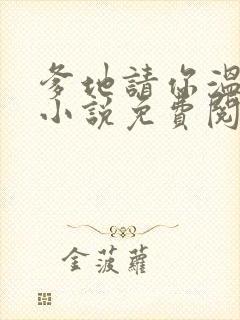 爹地請你溫
小說免費閱
金菠蘿